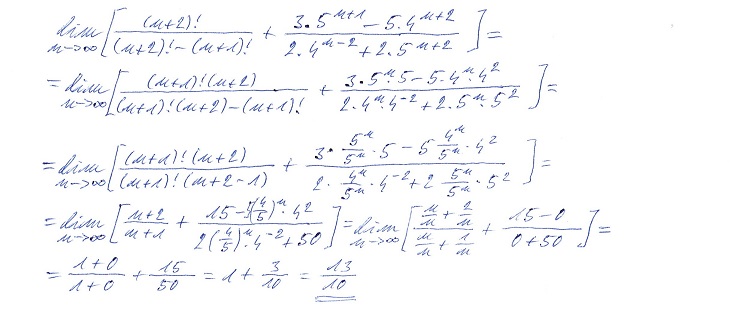 lim n→∞ [ (n+2)! / ((n+2)! − (n+1)!) + (3·5^(n+1) − 5·4^(n+2)) / (2·4^(n−2) + 2·5^(n+2)) ] =
= lim n→∞ [ (n+1)!(n+2) / ((n+1)!(n+2) − (n+1)!) + (3·5^n·5 − 5·4^n·4^2) / (2·4^n·4^(−2) + 2·5^n·5^2) ] =
= lim n→∞ [ (n+1)!(n+2) / ((n+1)!(n+2−1)) + (3·5^n/5^n·5 − 5 4^n/5^n·4^2) / (2·4^n/5^n·4^(−2) + 2 5^n/5^n·5^2) ] =
= lim n→∞ [ (n+2)/(n+1) + (15 − 5(4/5)^n·4^2) / (2(4/5)^n·4^(−2) + 50) ] = lim n→∞ [ (n/n + 2/n) / (n/n + 1/n) + (15−0)/(0+50) ] =
= (1+0)/(1+0) + 15/50 = 1 + 3/10 = 13/10